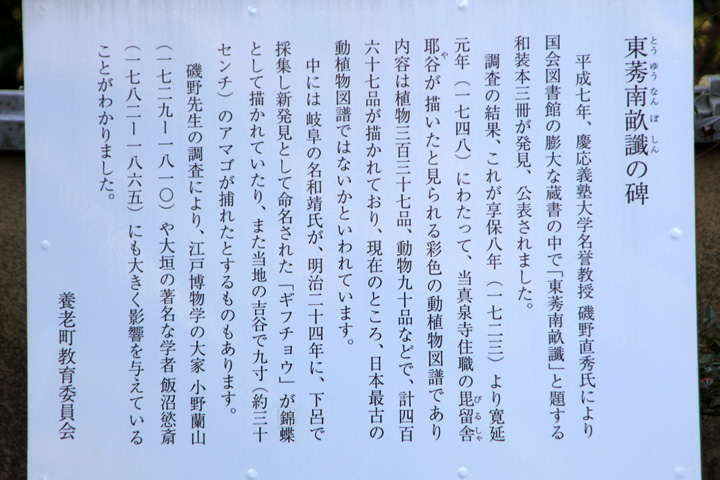 東莠南畝讖の碑
とうゆうなんぽしん
平成七年、慶応義塾大学名誉教授 磯野直秀氏により
国会図書館の膨大な蔵書の中で「東莠南畝讖」と題する
和装本三冊が発見、公表されました。
調査の結果、これが享保八年（一七二三）より寛延
元年（一七四八）にわたって、当真泉寺住職の毘留舎
びるしゃ
耶谷が描いたと見られる彩色の動植物図譜であり
や
内容は植物三百三十七品、動物九十品などで、計四百
六十七品が描かれており、現在のところ、日本最古の
動植物図譜ではないかといわれています。
中には 岐阜の名和靖氏が、明治二十四年に、下呂で
採集し新発見として命名された「ギフチョウ」が錦蝶
として描かれていたり、また当地の𠮷谷で九寸（約三十
センチ）のアマゴが捕れたとするものもあります。
磯野先生の調査により、江戸博物学の大家 小野蘭山
（一七二九ー一八一〇）や大垣の著名な学者 飯沼慾斎
（一七八二ー一八六五）にも大きく影響を与えている
ことがわかりました。
養老町教育委員会